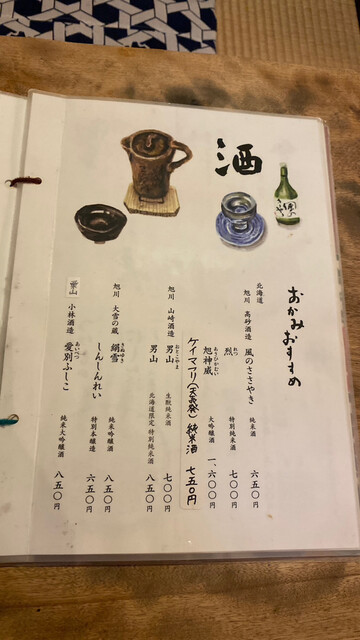 酒
おかみおすすめ
北海道
旭川 高砂酒造 風のささやき 純米酒 六五〇円
れつ
烈 特別純米酒 七〇〇円
旭神威 大吟醸酒 一、六〇〇円
ケイマフリ(天売発) 純米酒 七五〇円
おとこやま
旭川 山崎酒造 男山 生酛純米酒 七〇〇円
男山 北海道限定 特別純米酒 八五〇円
きぬゆき
旭川 大雪の蔵 絹雪 純米吟醸酒 八五〇円
しんしんれい 特別本醸造 六五〇円
あいべつ
小林酒造 愛別ふしこ 純米大吟醸酒 八五〇円